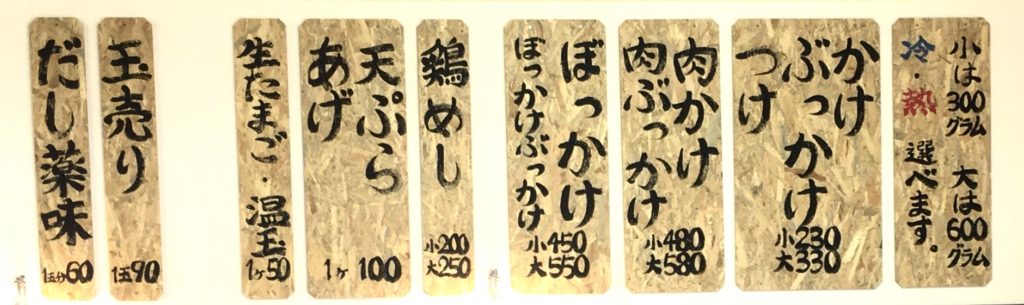 小は300グラム 大は600グラム
冷・熱 選べます。
かけ
ぶっかけ
つけ
小230
大330
肉かけ
肉ぶっかけ
小480
大580
ぼっかけ
ぼっかけぶっかけ
小450
大550
鶏めし
小200
大250
天ぷら
あげ
1ヶ100
生たまご・温玉
1ヶ50
玉売り
1玉90
だし薬味
1玉分60